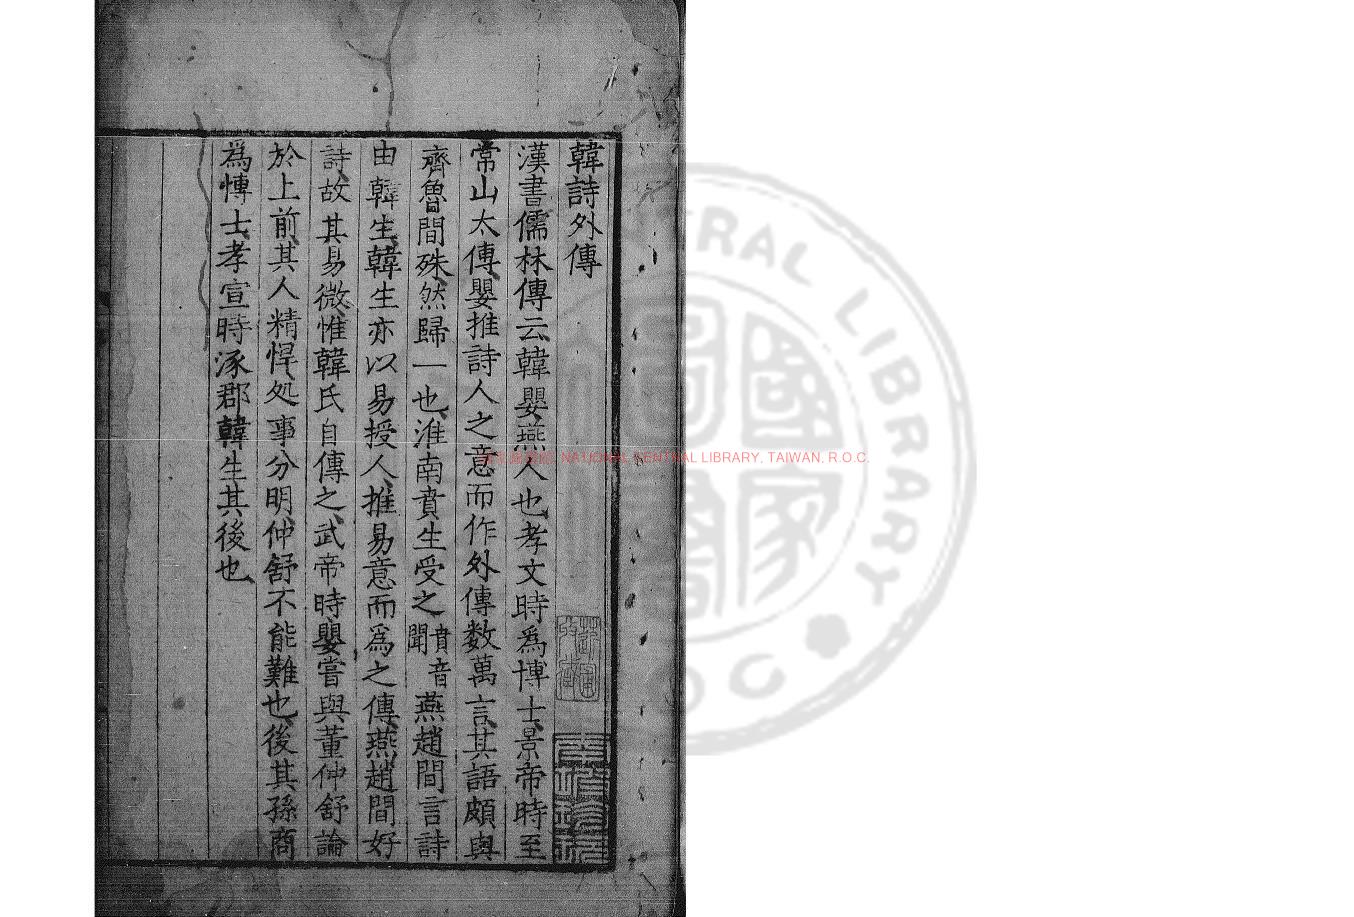 韓詩外傳
漢書儒林傳云韓嬰燕人也孝文時爲博士景帝時至
常山太傅嬰推詩人之意而作外傳数萬言其語頗與
齊魯間殊然歸一也淮南賁生受之賁音聞燕趙間言詩
由韓生韓生亦以易授人推易意而爲之傳燕趙間好
詩故其易微惟韓氏自傳之武帝時嬰嘗與董仲舒論
於上前其人精悍处事分明仲舒不能難也後其孫商
為博士孝宣時涿郡韓生其後也
NATIONAL CENTRAL LIBRARY, TAIWAN, R.O.C.